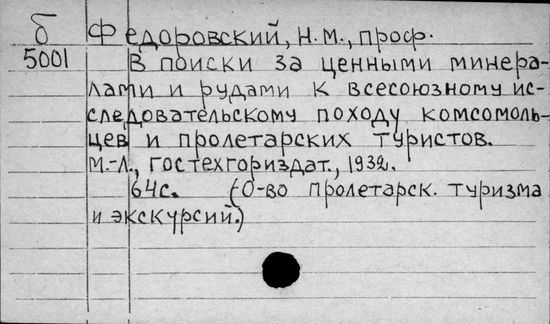 Б Федоровский, Н.М., проф.
5001 В поиски за ценными минера-
лами и рудами к всесоюзному ис-
следовательскому походу комсомоль-
цев и пролетарских туристов.
М.-Л., Гостехгориздат., 1932.
64с. (О-во пролетарск. туризма
и экскурсий.)